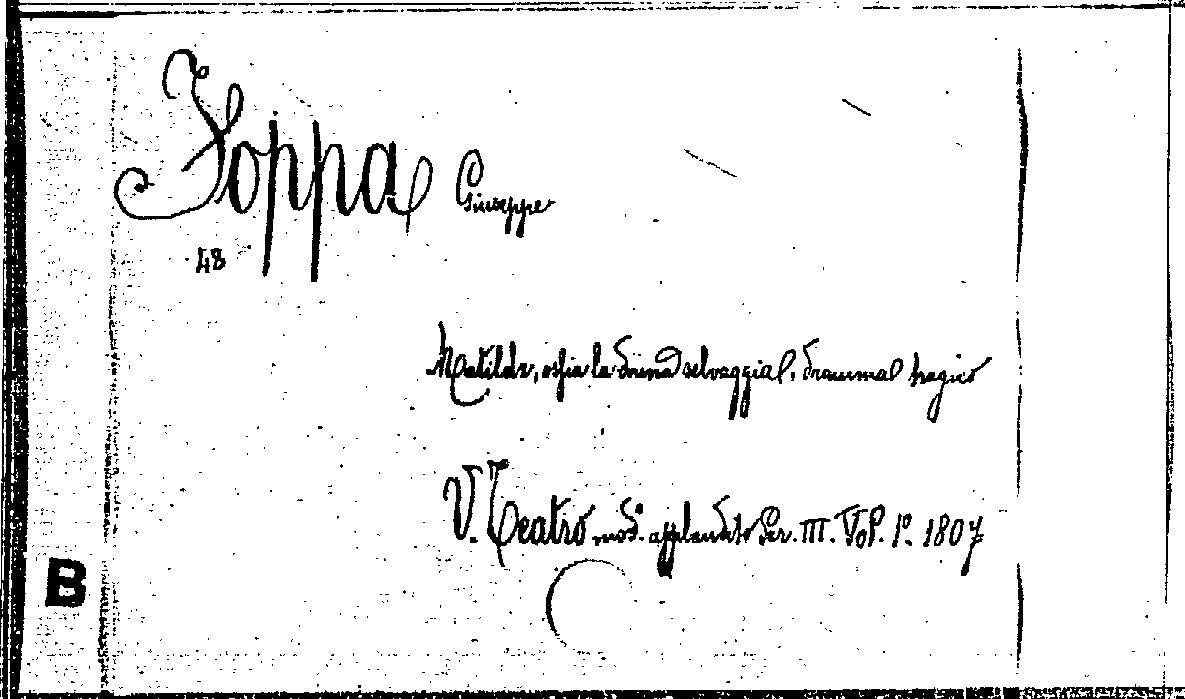 Foppa Giuseppe
48
Matilde, ossia la donna selvaggia, dramma tragico
V. Teatro mod.º applaudito Ser. III. Vol. 1º. 1807
B